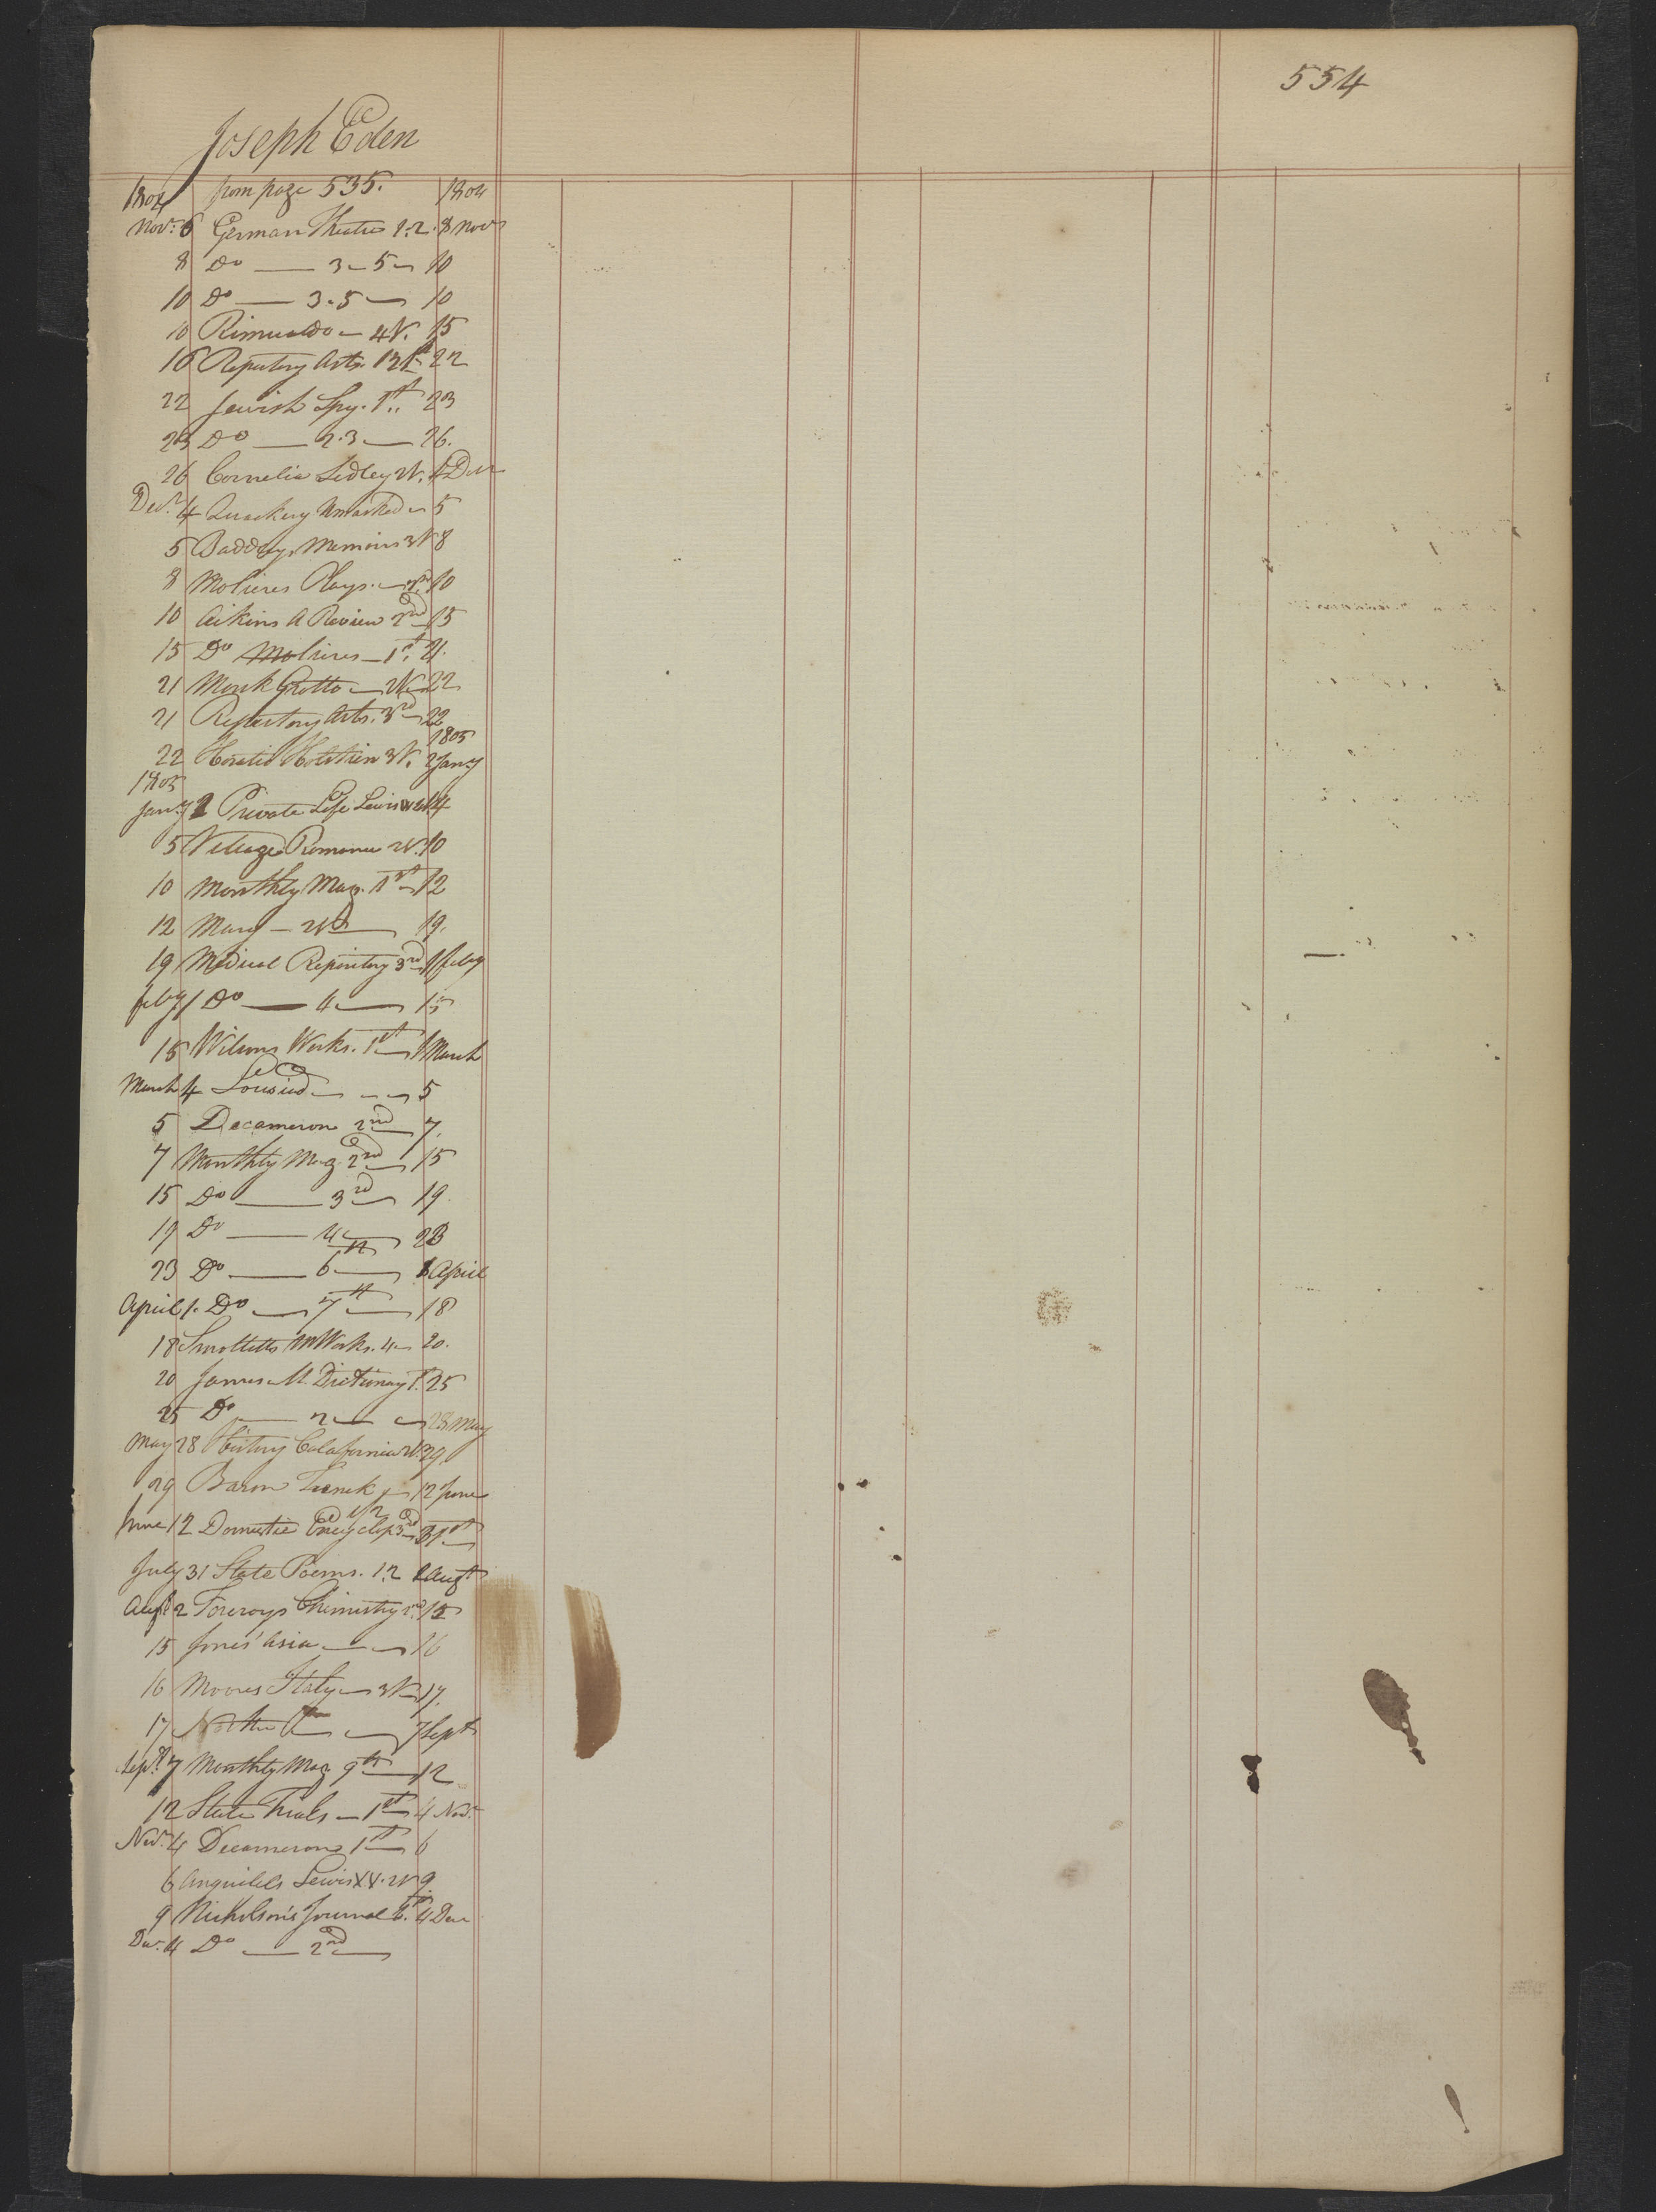 554
Joseph Eden
1804 from page 535. 1804
Novr. 6 German Theatre 1.2. 8 Novr
8 Do — 3 5 10
10 Do — 3.5 — 10
10 Rimualdo — 4 V. 15
16 Repertory Arts 1st 22
22 Jewish Spy. 1st 23
23 Do — 2.3 — 26.
26 Cornelia Sedley 2V. 4 Decr
Decr. 4 Quackery Unmasked 5
5 Baddelys Memoirs 3V 8
8 Molieres Plays. 10
10 Aikins A Review 2nd 15
15 Do Molieres — 1st. 21.
21 Monk Grotto — 2V. 22
21 Repertory Arts. 3rd 22
1805
22 Horatio Holstein 3V. 2 Jany
1805
Jany 2 Private Life Lewis 4
5 Village Romance 2V. 10
10 Monthly Mag. 1st 12
12 Mary — 2V — 19.
19 Medical Repository 3rd 1 Feby
Feby 1 Do — 4 — 15
15 Wilsons Works. 1st 1 March
March 4 Lousiad — 5
5 Decameron 2nd 7.
7 Monthly Mag. 2nd 15
15 Do — 3rd 19.
19 Do — 4 — 23
23 Do — 6th — 1 April
April 1. Do — 7th — 18
18 Smolletts Works. 4 20.
20 James M. Dictionay 1. 25
25 Do — 2 — 28 May
May 28 History Calafornia 2V. 29
29 Baron Trenck 12 June
June 12 Domestic Encyclop 3rd 31st
July 31 State Poems. 1.2 2 Augt
Augt 2 Forcroys Chimistry 15
15 Jones' Asia — 16
16 Moores Italy — 3V 17.
17 7 Sept
Sept. 7 Monthly Mag 9th 12
12 State Trials — 1st 4 Novr
Novr. 4 Decameron 1st 6
6 Anquitels Lewis XV. 2V 9
9 Nicholson's Journal 4 Decr
Decr. 4 Do — 2nd